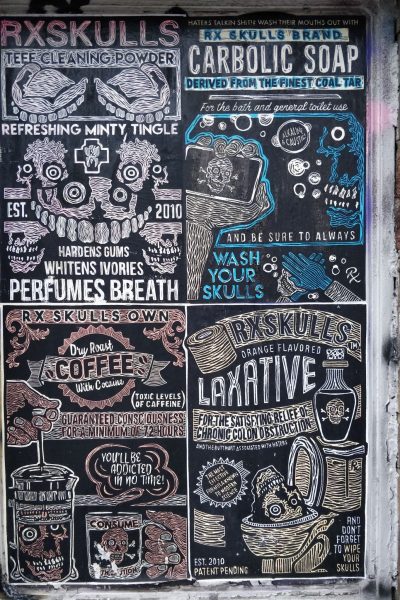 RXSKULLS
TEEF CLEANING POWDER
REFRESHING MINTY TINGLE
EST. 2010
HARDENS GUMS
WHITENS IVORIES
PERFUMES BREATH
HATERS TALKIN SHITE WASH THEIR MOUTHS OUT WITH
RX SKULLS BRAND
CARBOLIC SOAP
DERIVED FROM THE FINEST COAL TAR
For the bath and general toilet use
ALKALINE & CAUSTIC
AND BE SURE TO ALWAYS
WASH
YOUR
SKULLS
RX
RX SKULLS OWN
Dry Roast
COFFEE
With Cocaine
TOXIC LEVELS
OF CAFFEINE!
GUARANTEED CONSCIOUSNESS
FOR A MINIMUM OF 72 HOURS
YOU'LL BE
ADDICTED
IN NO TIME!
CONSUME
RXSKULLS
ORANGE FLAVORED
LAXATIVE
FOR THE SATISFYING RELIEF OF
CHRONIC COLON OBSTRUCTION
AND THE BUTTHURT ASSOCIATED WITH HATERS
EST. 2010
PATENT PENDING
AND
DON'T
FORGET
TO WIPE
YOUR
SKULLS